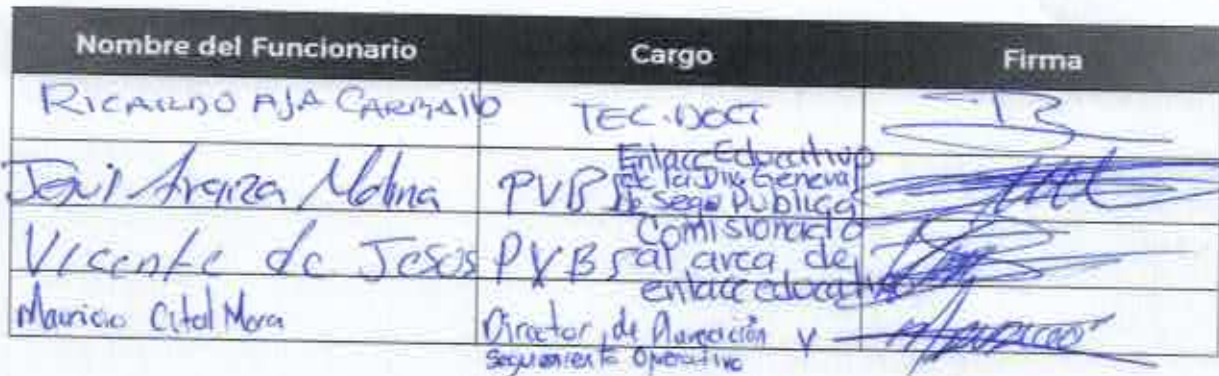 Nombre del Funcionario Cargo Firma
RICARDO AJA CARBALLO TEC. DOCT
Araiza Molina PVBS Enlace Educativo
de la Dir. General
de Segu Publica
Vicente de Jesús PVBS Comisionado
al area de
enlace educativo
Mauricio Citol Mora Director de Planeación y
Seguimiento Operativo